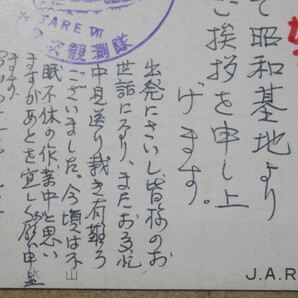 て昭和基地より
ご挨拶を申し上
げます。
出発にさいし皆様のお
世話になり、またお多忙
中見送り戴き有難う
ございました。今頃は不
眠不休の作業中と思い
ますがあとを宜しくお願い申上
ます。
JARE VII
次観測隊
J.A.R